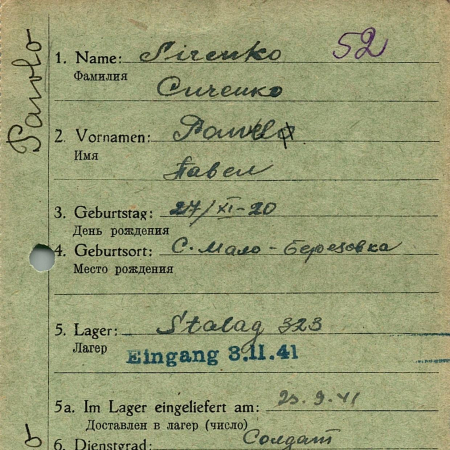 Pawlo
52
1. Name: Sirenko
Фамилия
Сиренко
2. Vornamen: Pawlo
Имя
Павел
3. Geburtstag: 27/XI-20
День рождения
4. Geburtsort: С. Мало-Березовка
Место рождения
5. Lager: Stalag 323
Лагер
Eingang 3.11.41
5a. Im Lager eingeliefert am: 23.9.41
Доставлен в лагер (число)
6. Dienstgrad: Солдат